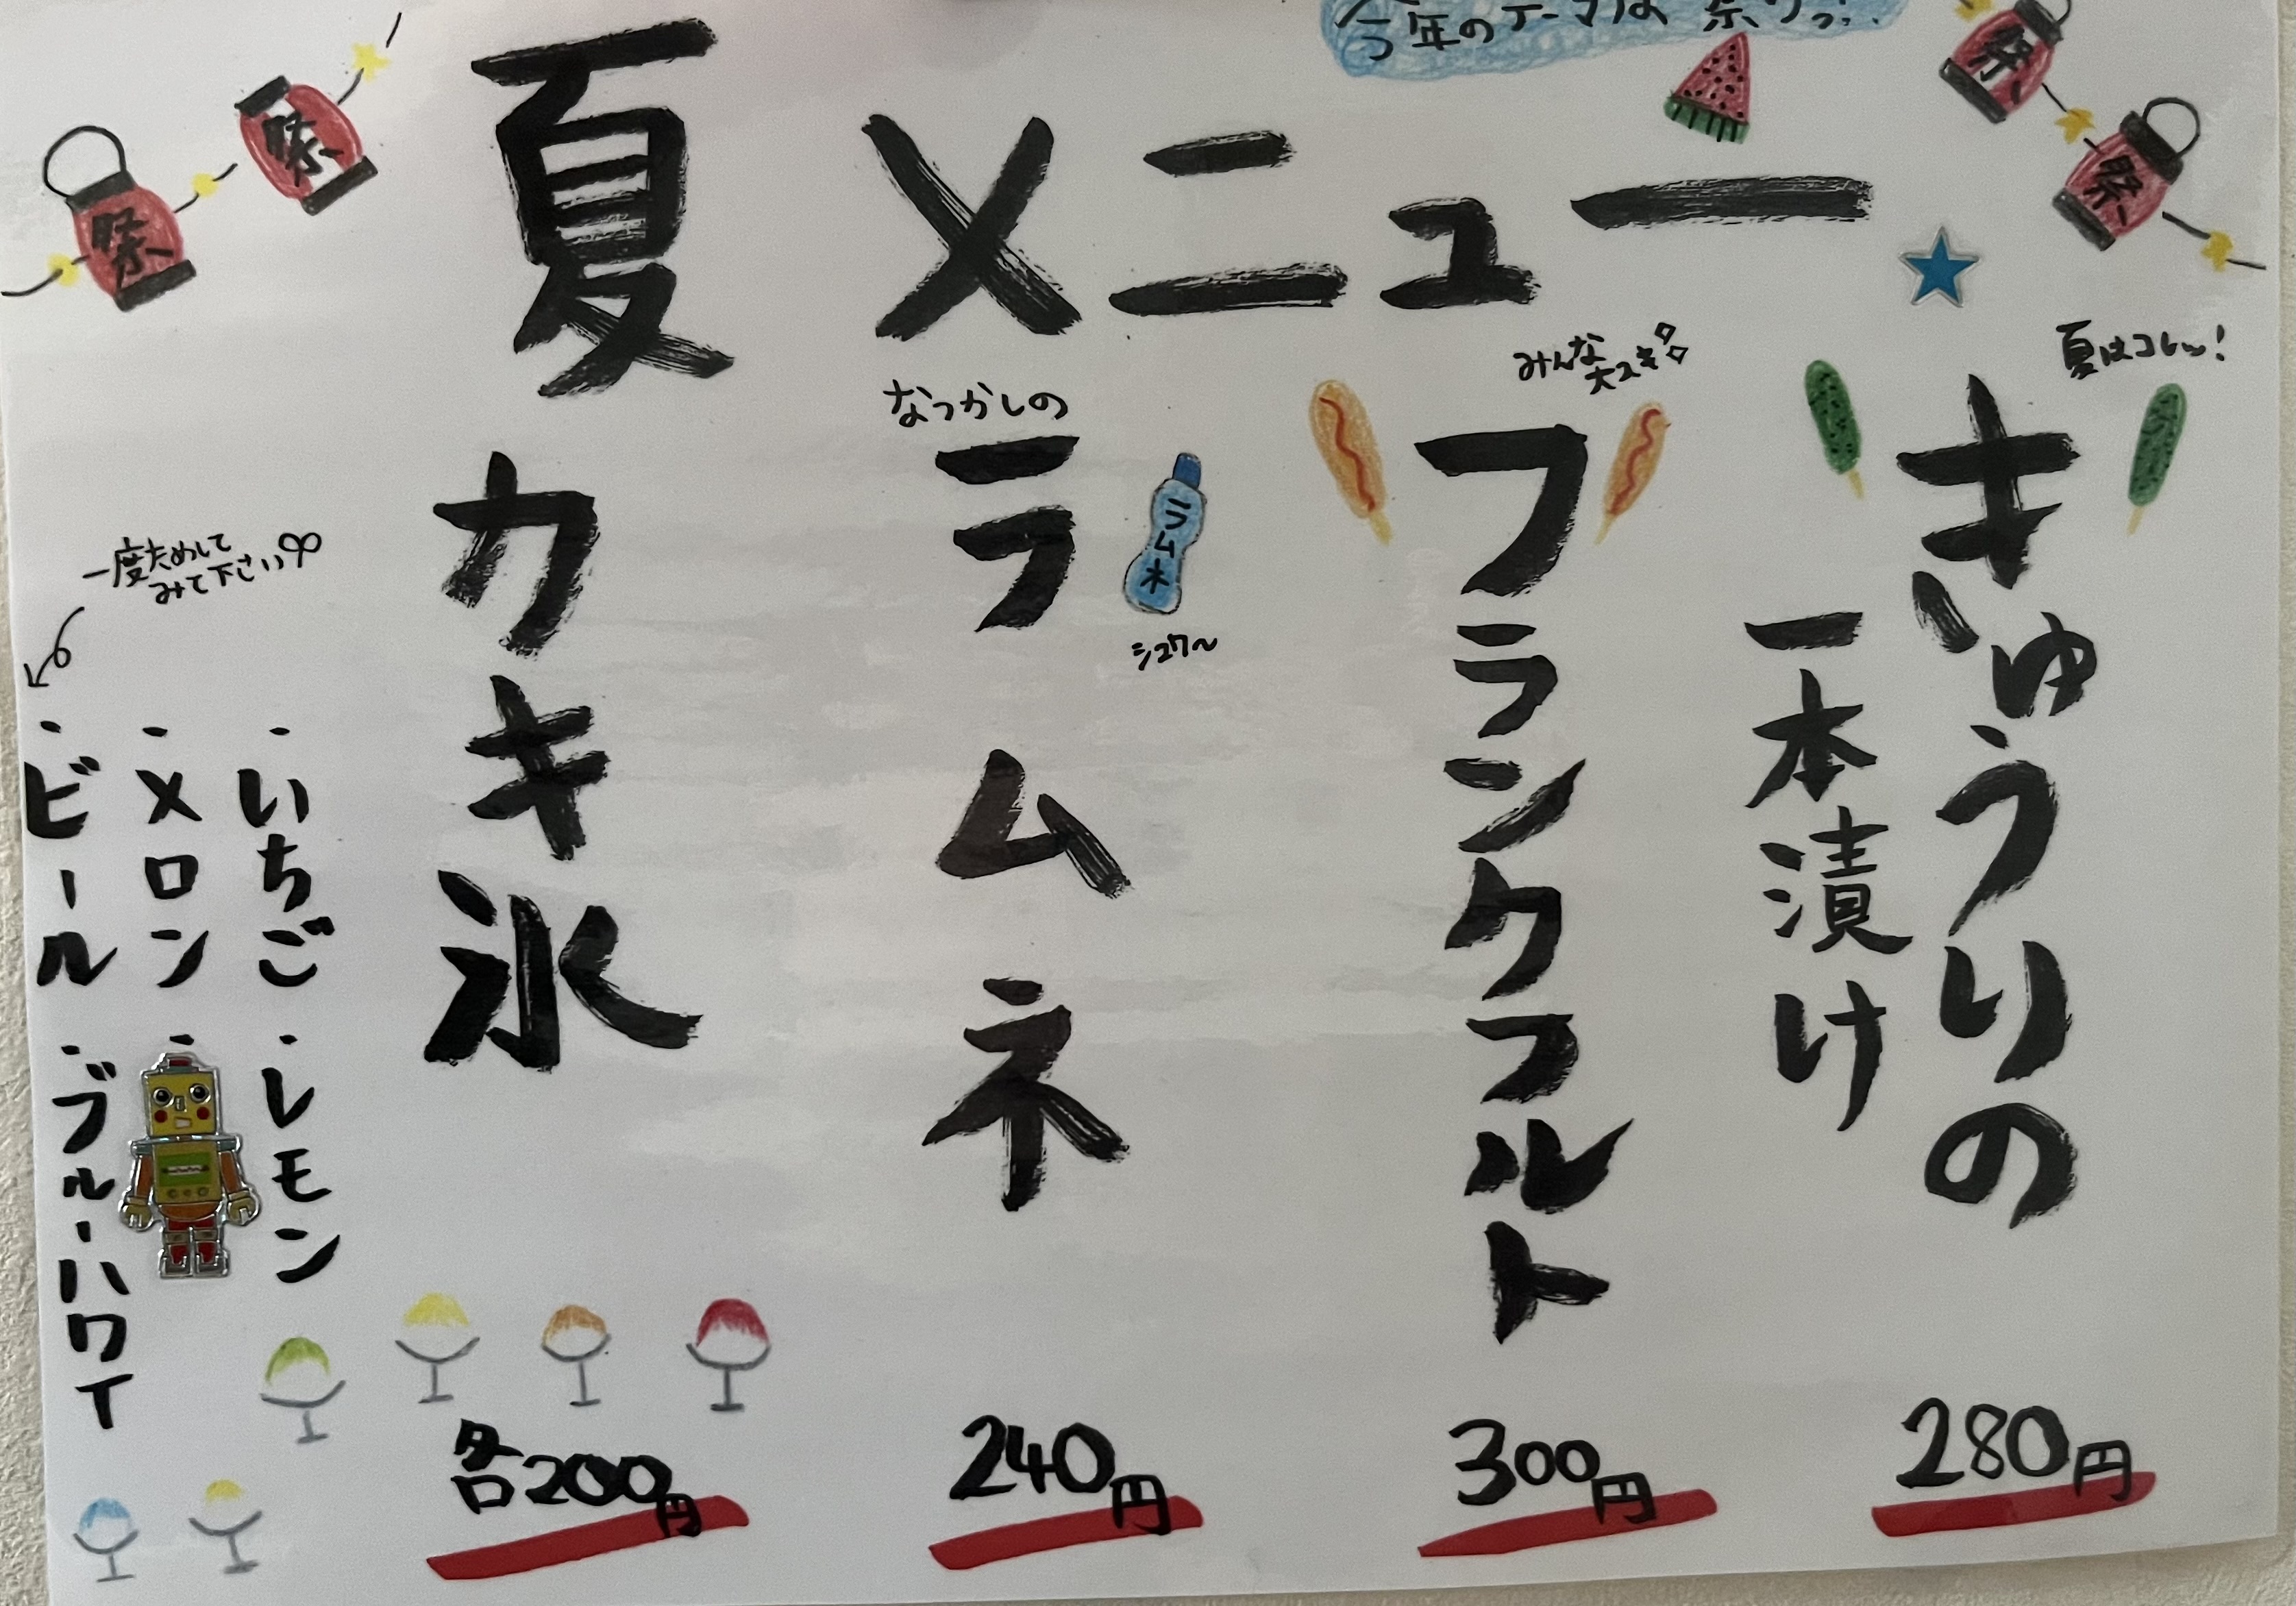 今年のテーマは祭りっ!!
夏メニュー
祭
祭
祭
祭
夏はコレッ!
きゅうりの
一本漬け
280円
みんな
大スキ
フランクフルト
300円
なつかしの
ラムネ
ラムネ
シュワ〜
240円
カキ氷
各200円
・いちご ・レモン
・メロン ・
一度ためして
みて下さい
・ビール ・ブルーハワイ